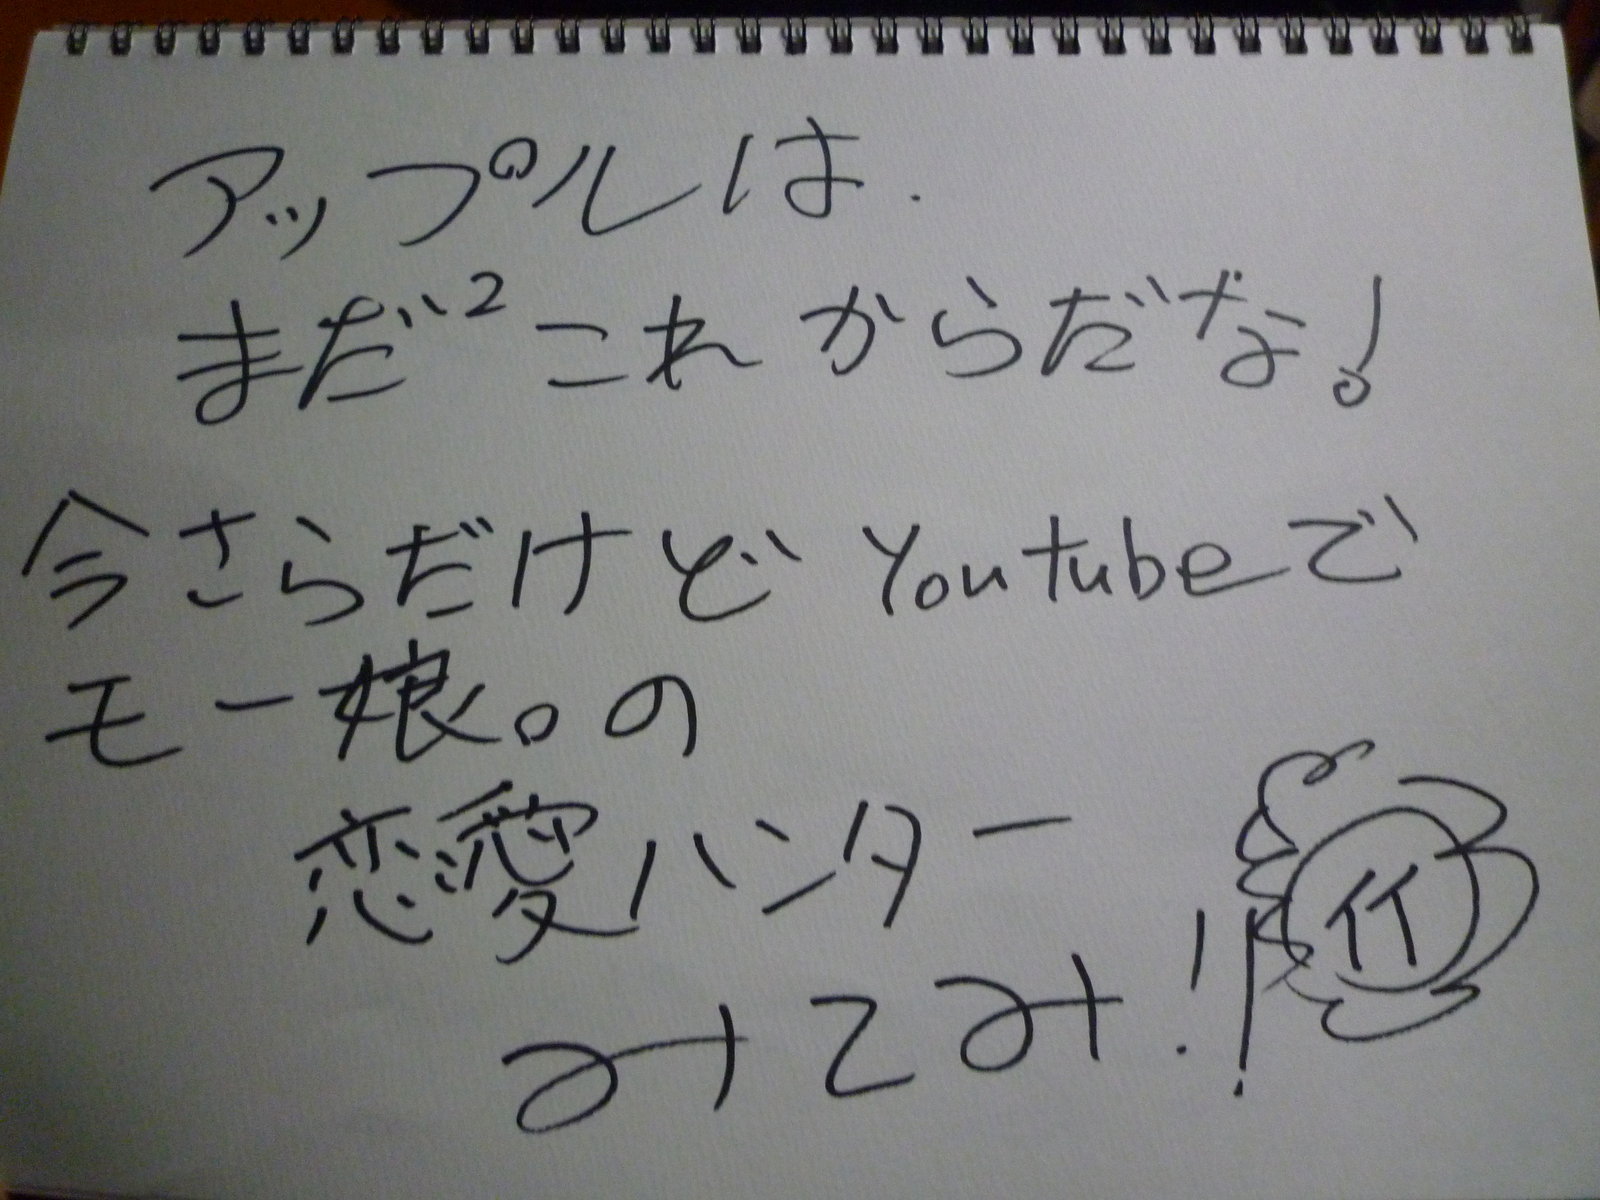 アップルは.
まだ²これからだな!
今さらだけどYoutubeで
モー娘。の
恋愛ハンター
みてみ!!
竹